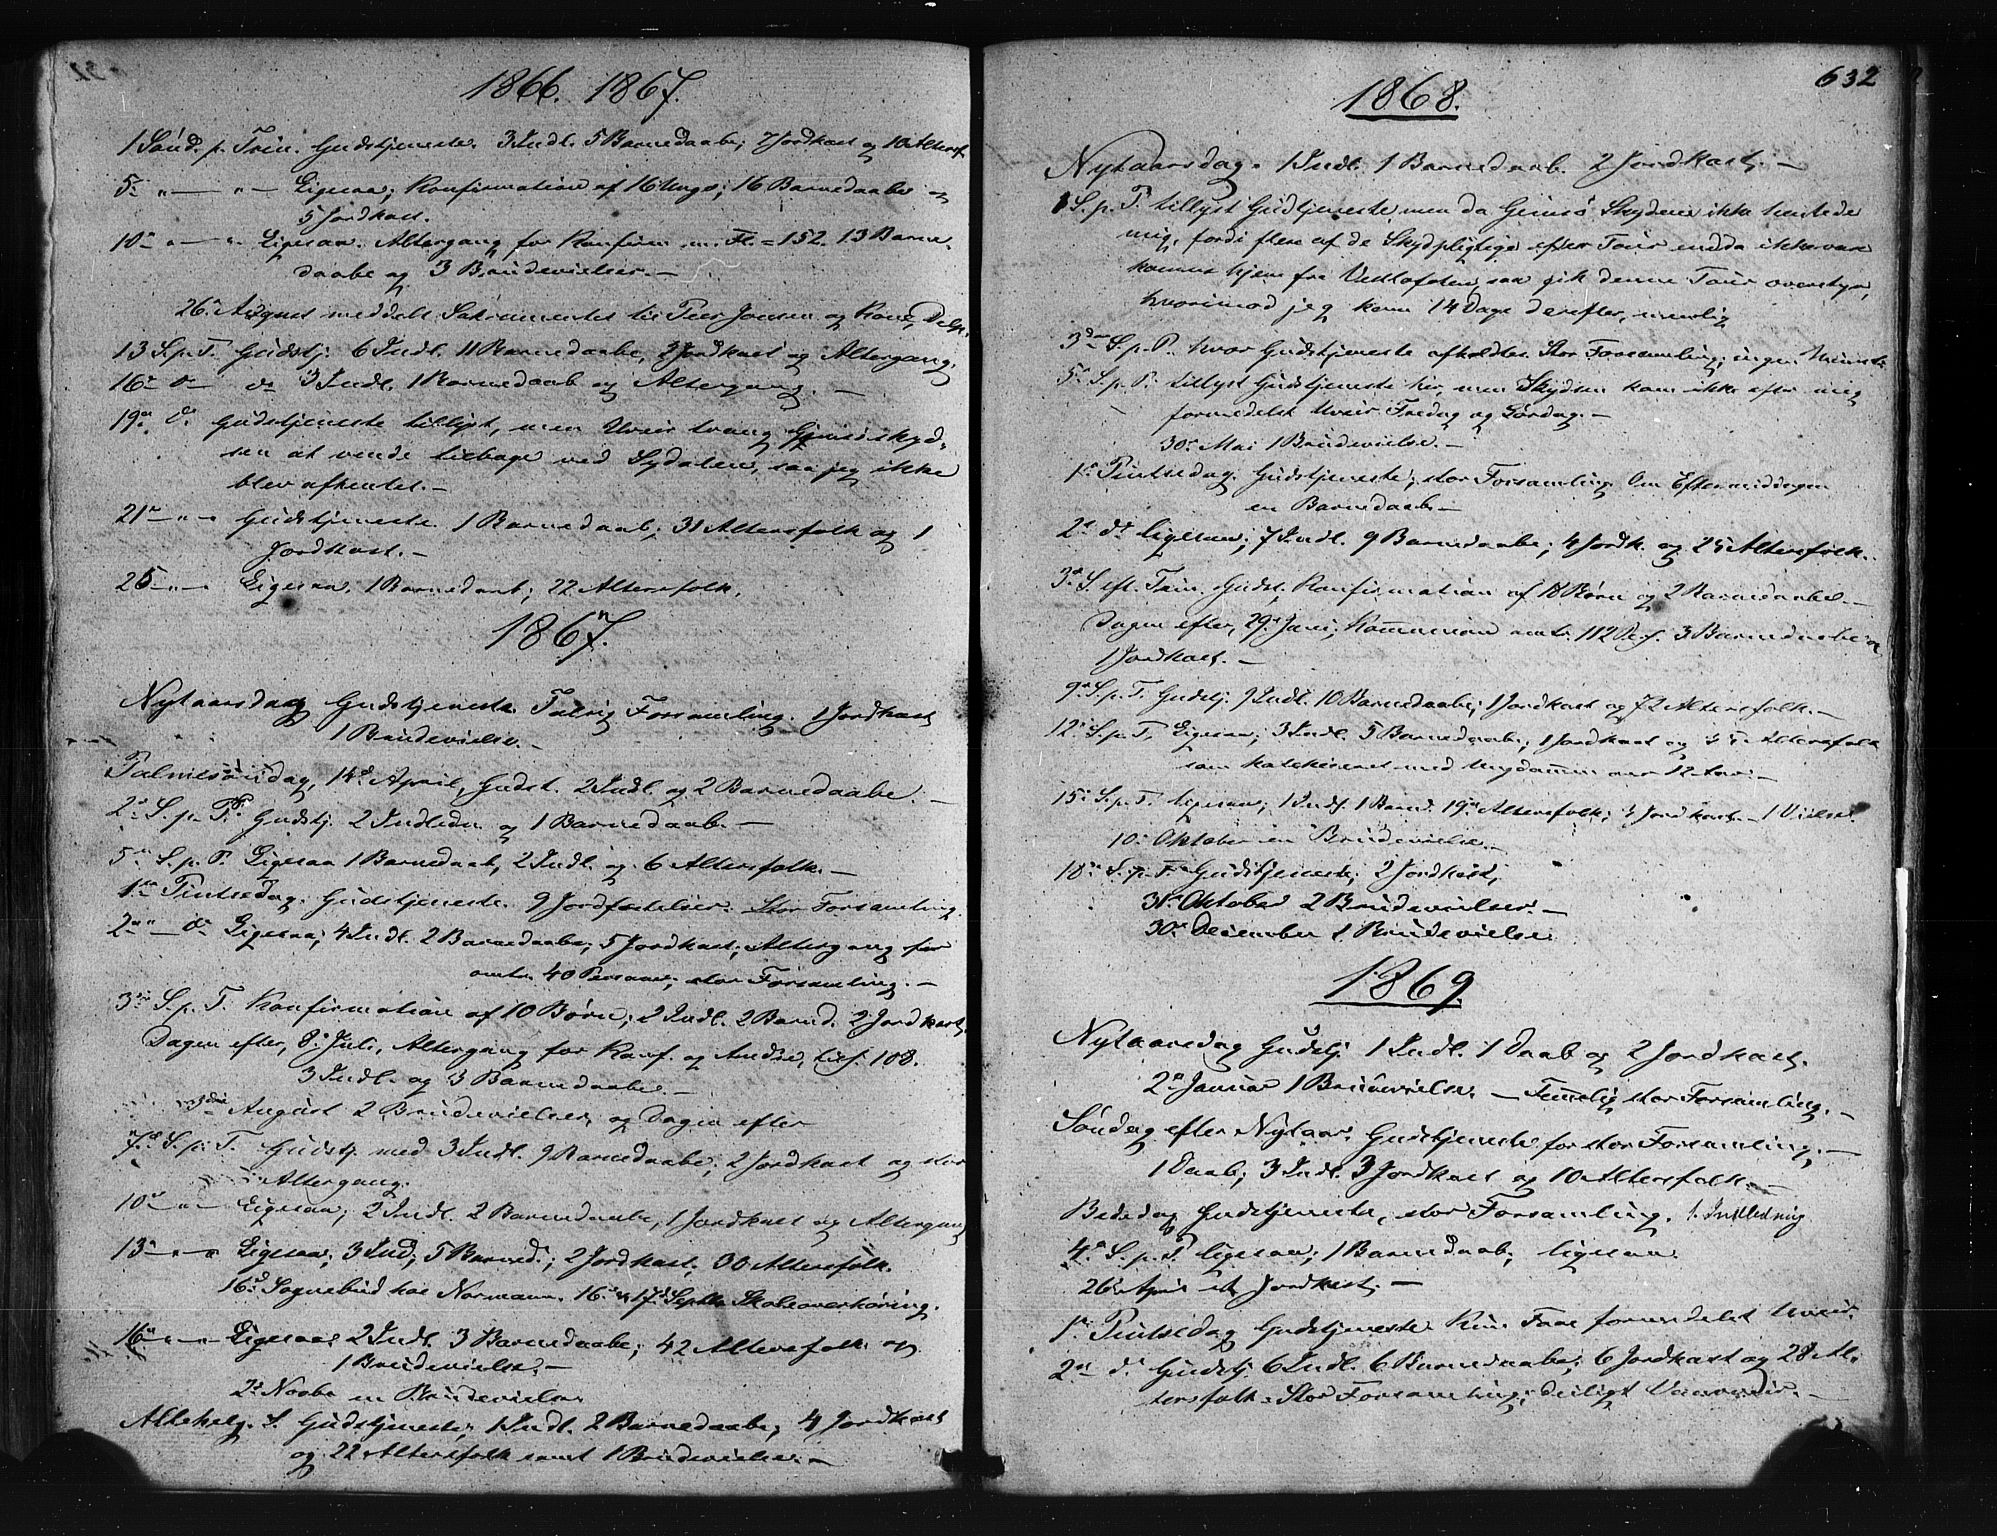 1866. 1867.
1 Sönd. p. Trin. Gudstjeneste 3 Indl. 5 Barnedaabe; 7 Jordkast og 10 Altersf.
5te „ — „ — Ligesaa; Konfirmation af 16 Unge; 16 Barnedaabe og
5 Jordkast.
10de „ — „ Ligesaa. Altergang for Konfirm. m. Fl. = 152. 13 Barne-
daabe og 3 Brudevielser. —
26de August meddelt Sakramentet til Peer Jensen og Kone,
13 S. p. T. Gudstj. 6 Indl. 11 Barnedaabe, 2 Jordkast og Altergang.
16de do do 3 Indl. 1 Barnedaab og Altergang. —
19de do Gudstjeneste tillyst, men Uveir tvang Gimsöskyd-
sen at vende tilbage ved Sydalen, saa jeg ikke
blev afhentet. —
21de „ „ Gudstjeneste 1 Barnedaab; 31 Altersfolk og 1
Jordkast. —
25 — „ — Ligesaa, 1 Barnedaab; 22 Altersfolk.
1867.
Nytaarsdag Gudstjeneste. Talrig Forsamling. 1 Jordkast
1 Brudevielse. —
Palmesöndag, 14de April, Gudst. 2 Indl. og 2 Barnedaabe. —
2den S. p. P. Gudstj. 2 Indledn. og 1 Barnedaab. —
5te S. p. P. Ligesaa 1 Barnedaab, 2 Indl. og 6 Altersfolk. —
1ste Pintsedag. Gudstjeneste. 9 Jordfæstelser. Stor Forsamling.
2den — do Ligesaa; 4 Indl. 2 Barnedaabe; 5 Jordkast; Altergang for
omtr. 40 Personer; stor Forsamling. —
3die S. p. T. Konfirmation af 10 Börn; 2 Indl. 2 Barned. 2 Jordkast.
Dagen efter, 8de Juli, Altergang for Konf. og Andre, tils. 108.
3 Indl. og 3 Barnedaabe. —
3die August 2 Brudevielser, og Dagen efter
7de S. p. T. Gudstj. med 3 Indl. 9 Barnedaabe; 2 Jordkast og stor
Altergang.
10de „ — „ Ligesaa; 2 Indl. 2 Barnedaabe, 1 Jordkast og Altergang
13de „ „ Ligesaa; 3 Ind; 5 Barned.; 2 Jordkast; 30 Altersfolk.
16de Sognebud hos Normann. 16de & 17de Septbr Skoleoverhöring.
16de „ „ Ligesaa 2 Indl. 3 Barnedaabe; 42 Altersfolk og
1 Brudevielse. —
2de Novbr en Brudevielse
Allehelg. S. Gudstjeneste; 1 Indl. 2 Barnedaabe; 4 Jordkast
og 22 Altersfolk samt 1 Brudevielse. —
632
1868.
Nytaarsdag. 1 Indl. 1 Barnedaab. 2 Jordkast. —
1 S. p. P. tillyst Gudstjeneste, men da Gimsö Skydsen ikke hentede
mig, fordi flere af de Skydspligtige efter Tour endda ikke vare
komne hjem fra Vedtofsten, saa gik denne Tour overstyr,
hvorimod jeg kom 14 Dage derefter, nemlig
3die S. p. P. hvor Gudstjeneste afholdtes. Stor Forsamling; ingen
5te S. p. P. tillyst Gudstjeneste her, men Skydsen kom ikke efter mig
formedelst Uveir Fredag og Lördag. —
30te Mai 1 Brudevielse. —
1ste Pintsedag. Gudstjeneste; stor Forsamling. Om Eftermiddagen
en Barnedaab —
2den do ligesaa; 7 Indl. 9 Barnedaabe; 4 Jordk. og 25 Altersfolk.
3die S. eft. Trin. Gudst; Konfirmation af 18 Börn og 2 Barnedaabe. —
Dagen efter, 29de Juni, Kommunion omtr. 112 Pers. 3 Barnedaabe og
1 Jordkast. —
9de S. p. T. Gudstj. 9 Indl. 10 Barnedaabe; 1 Jordkast og 72 Altersfolk. —
12te S. p. T. Ligesaa; 3 Indl. 5 Barnedaabe; 1 Jordkast og 35 Altersfolk
som katekiseret med Ungdommen
15de S. p. T. ligesaa; 1 Indl. 1 Barned. 19 Altersfolk; 3 Jordkast. — 1 Vielse.
10de Oktober en Brudevielse. —
18de S. p. T. Gudstjeneste; 2 Jordkast;
31te Oktober 2 Brudevielser. —
30te December 1 Brudevielse
1869.
Nytaarsdag Gudstj. 1 Indl. 1 Daab og 2 Jordkast.
2den Januar 1 Brudevielse. — Temmelig stor Forsamling. —
Söndag efter Nytaar. Gudstjeneste for stor Forsamling. —
1 Daab; 3 Indl. 3 Jordkast og 10 Altersfolk. —
Bededag Gudstjeneste, stor Forsamling. 1. Indledning
4de S. p. P. ligesaa; 1 Barnedaab; ligesaa
26de April et Jordkast. —
1ste Pintsedag Gudstjeneste Kun Faae formedelst Uveir.
2den do Gudstj. 6 Indl. 6 Barnedaabe; 6 Jordkast og 28 Al-
tersfolk. Stor Forsamling; deiligt Veir. —